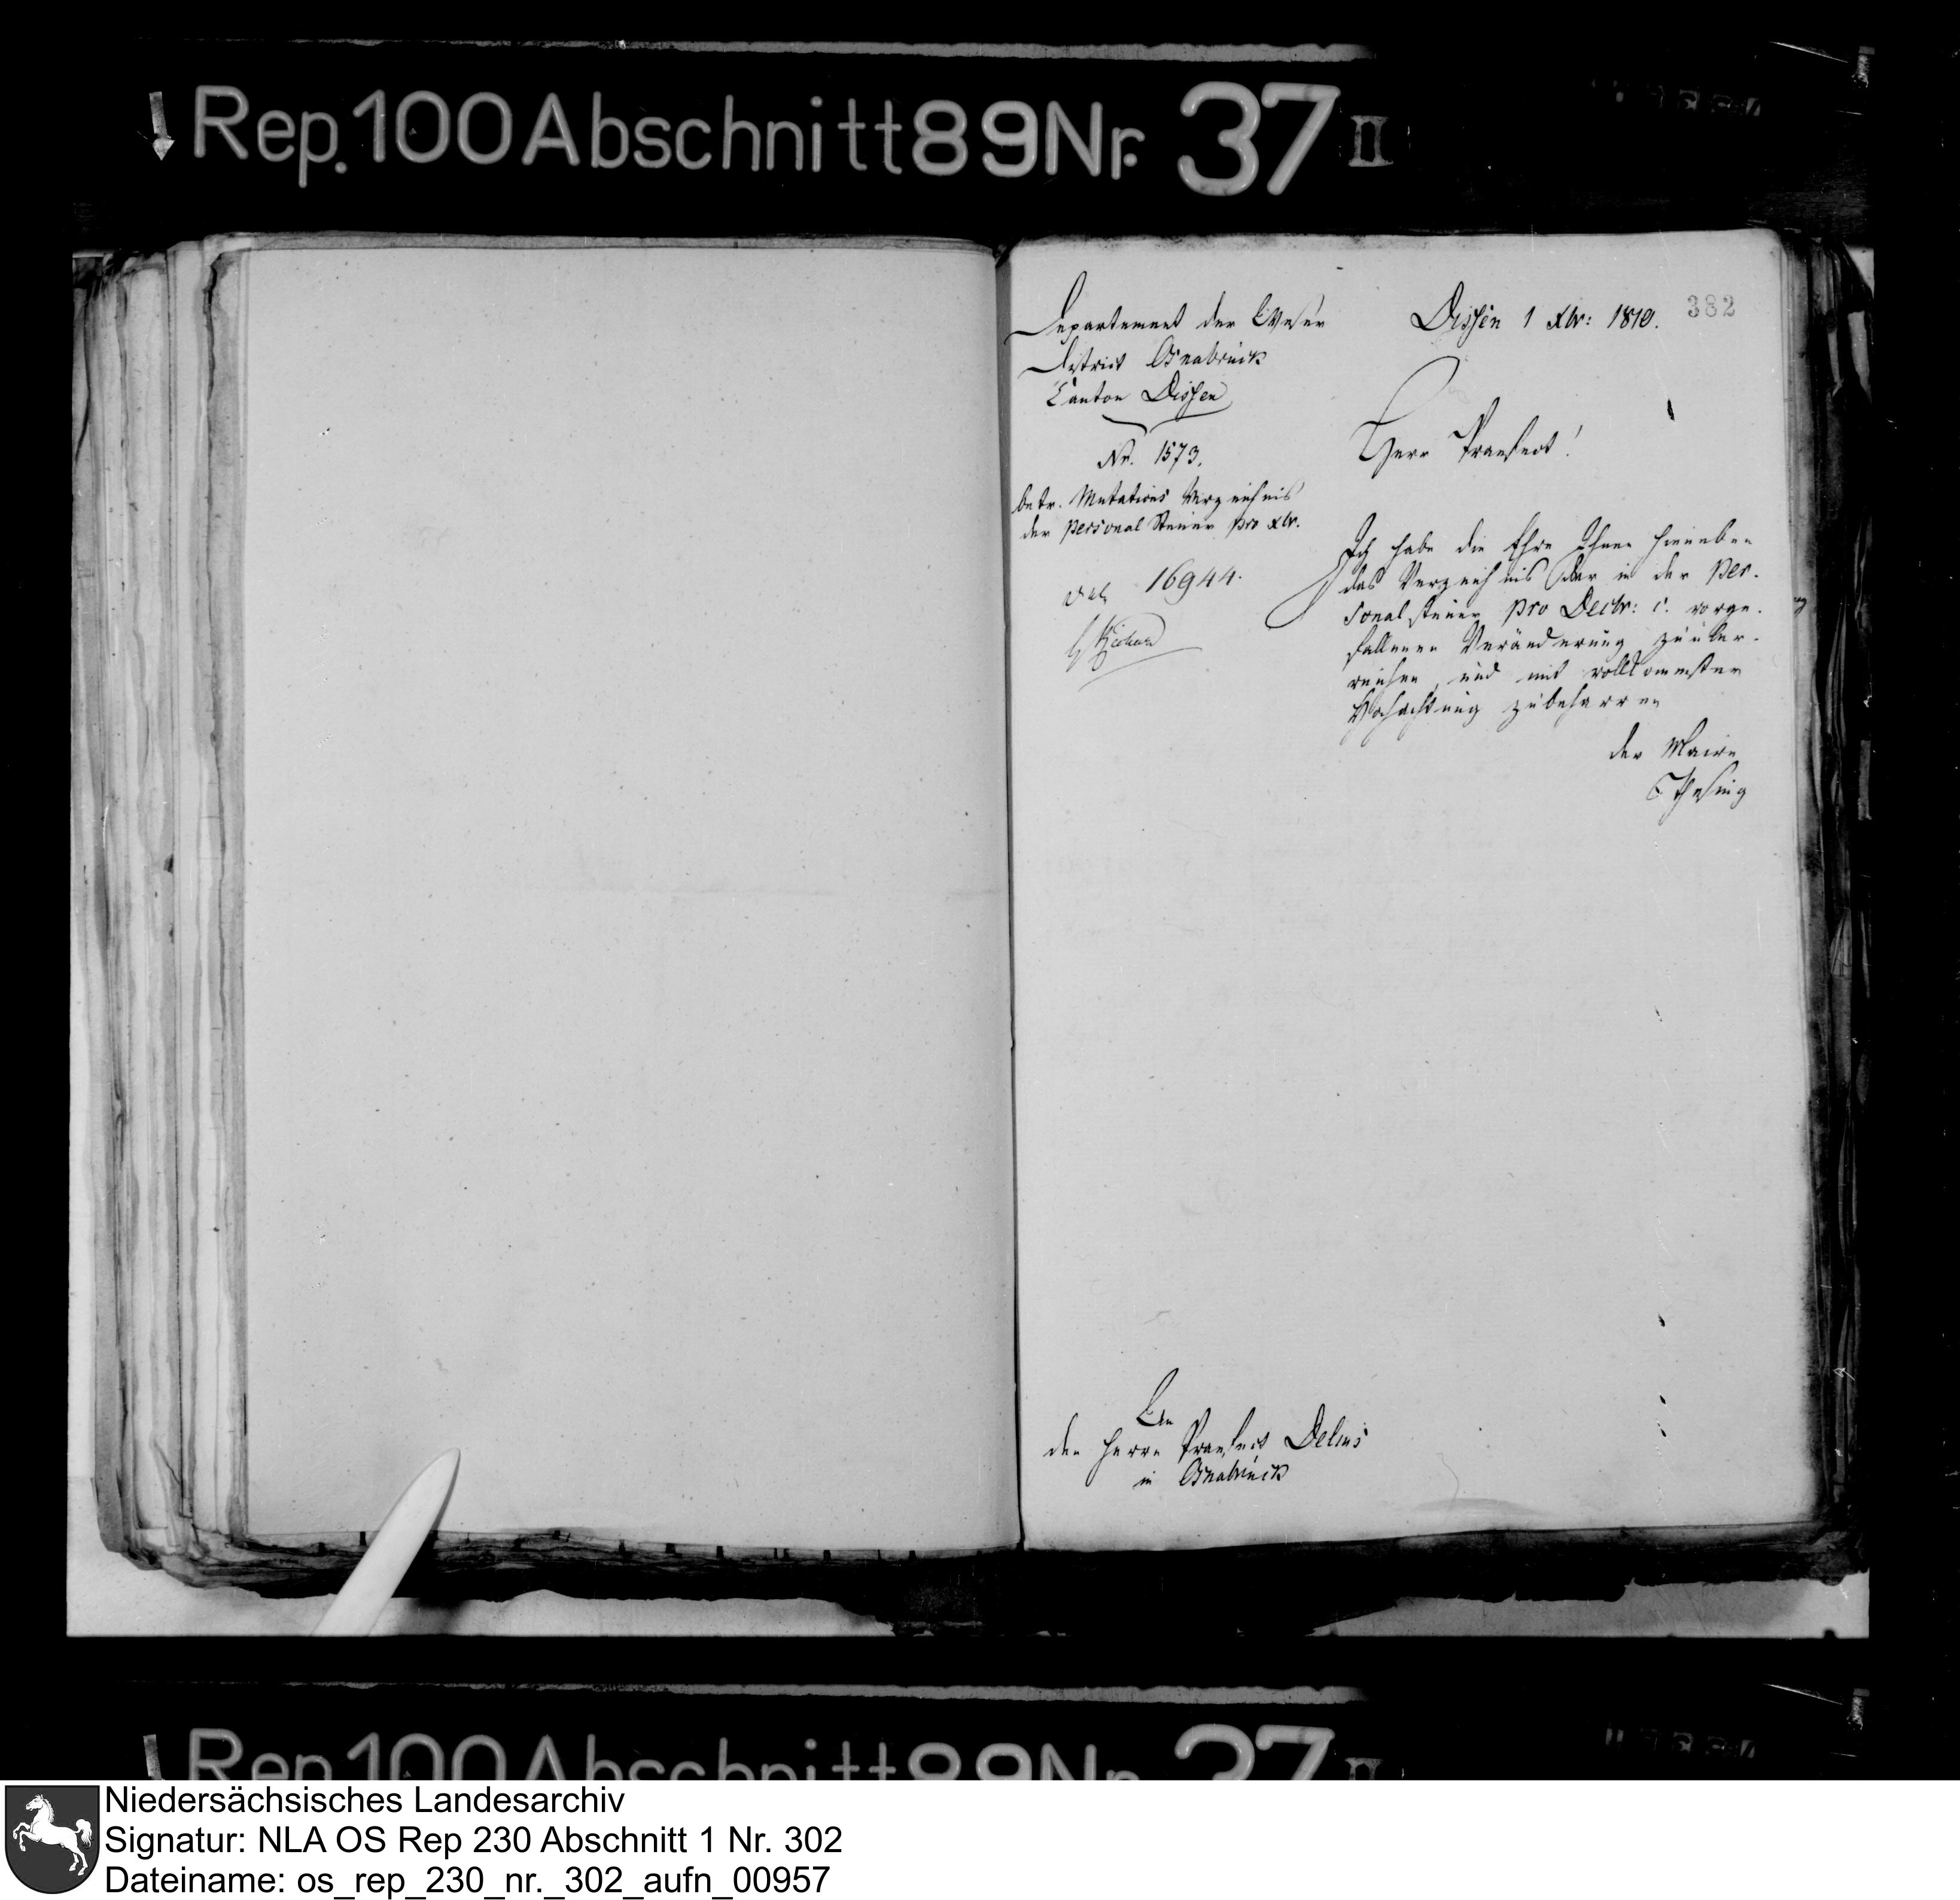 Rep. 100 Abschnitt 89 Nr. 37 II
382
Departement der Weser
District Osnabrück
Canton Dissen
Nr. 1573.
betr. Mutations Verzeichnis
der Personal Steuer pro Xbr.
16944.
Dissen 1 Xbr: 1810.
Herr Praefect!
Ich habe die Ehre Ihnen hieneben
das Verzeichnis der in der Per-
sonalsteuer pro Decbr: c. vorge-
fallenen Veränderung zu über-
reichen, und mit vollkommenster
Hochachtung zu beharren
der Maire
An
den Herrn Praefect Delius
in Osnabrück
Rep. 100 Abschnitt 89 Nr. 37 II
Niedersächsisches Landesarchiv
Signatur: NLA OS Rep 230 Abschnitt 1 Nr. 302
Dateiname: os_rep_230_nr._302_aufn_00957